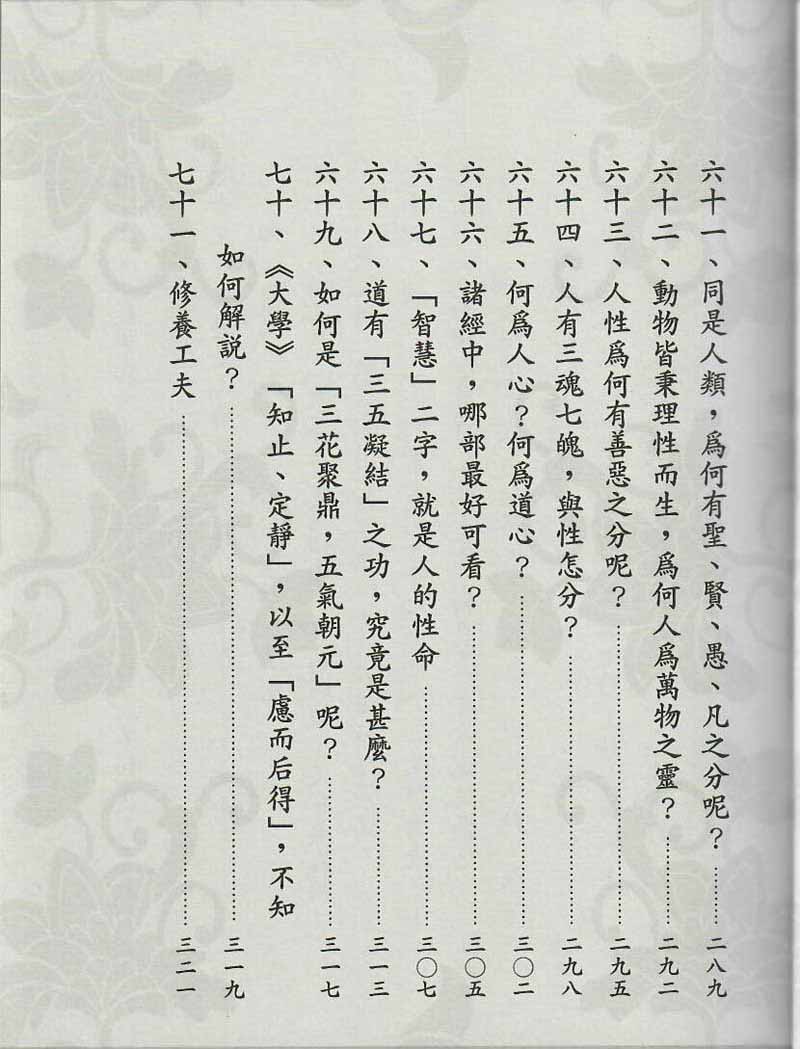 六十一、同是人類，爲何有聖、賢、愚、凡之分呢？⋯⋯⋯⋯二八九
六十二、動物皆秉理性而生，爲何人爲萬物之靈？⋯⋯⋯⋯二九二
六十三、人性爲何有善惡之分呢？⋯⋯⋯⋯二九五
六十四、人有三魂七魄，與性怎分？⋯⋯⋯⋯二九八
六十五、何爲人心？何爲道心？⋯⋯⋯⋯三〇二
六十六、諸經中，哪部最好可看？⋯⋯⋯⋯三〇五
六十七、「智慧」二字，就是人的性命⋯⋯⋯⋯三〇七
六十八、道有「三五凝結」之功，究竟是甚麼？⋯⋯⋯⋯三一三
六十九、如何是「三花聚鼎，五氣朝元」呢？⋯⋯⋯⋯三一七
七十、《大學》「知止、定靜」，以至「慮而后得」，不知
如何解説？⋯⋯⋯⋯三一九
七十一、修養工夫⋯⋯⋯⋯三二一